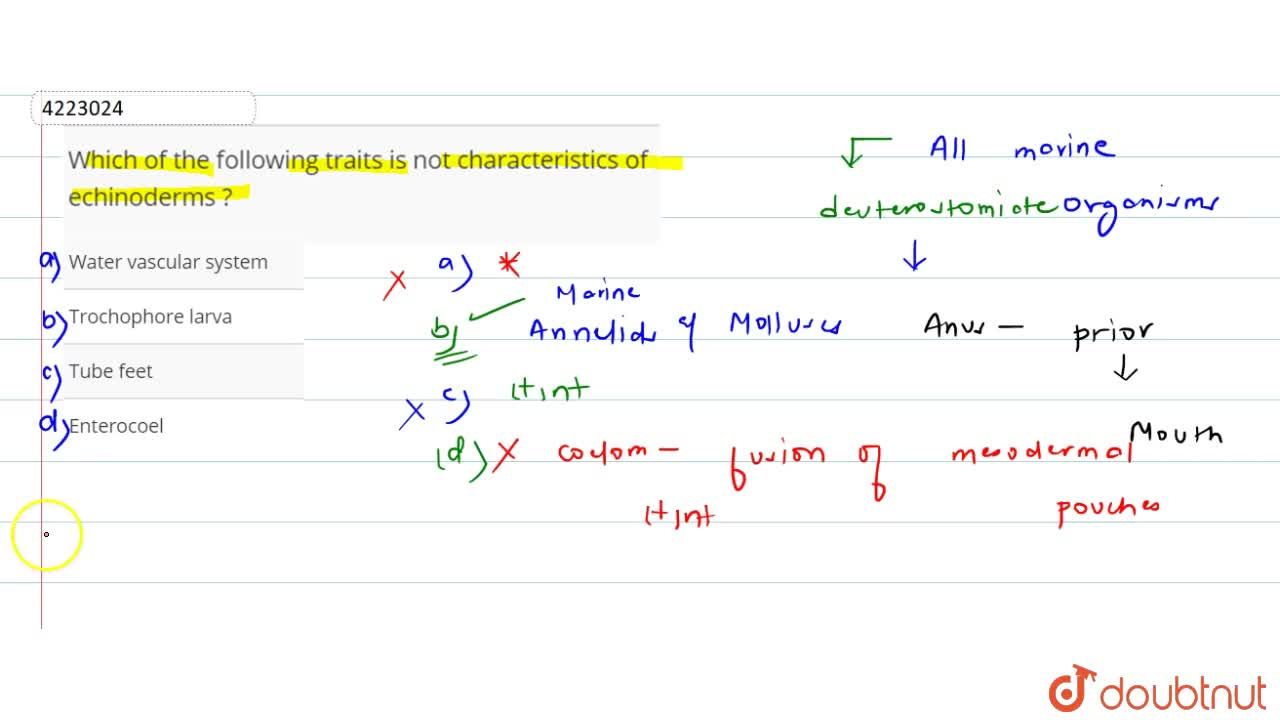 4223024
Which of the following traits is not characteristics of
echinoderms ?
a) Water vascular system
b) Trochophore larva
c) Tube feet
d) Enterocoel
All marine
deuterostomiate organisms
Anus — prior
Mouth
X a) *
b) Marine
Annelids & Molluscs
X c) It,nt
(d) X coelom — fusion of mesodermal
pouches
It,nt
doubtnut